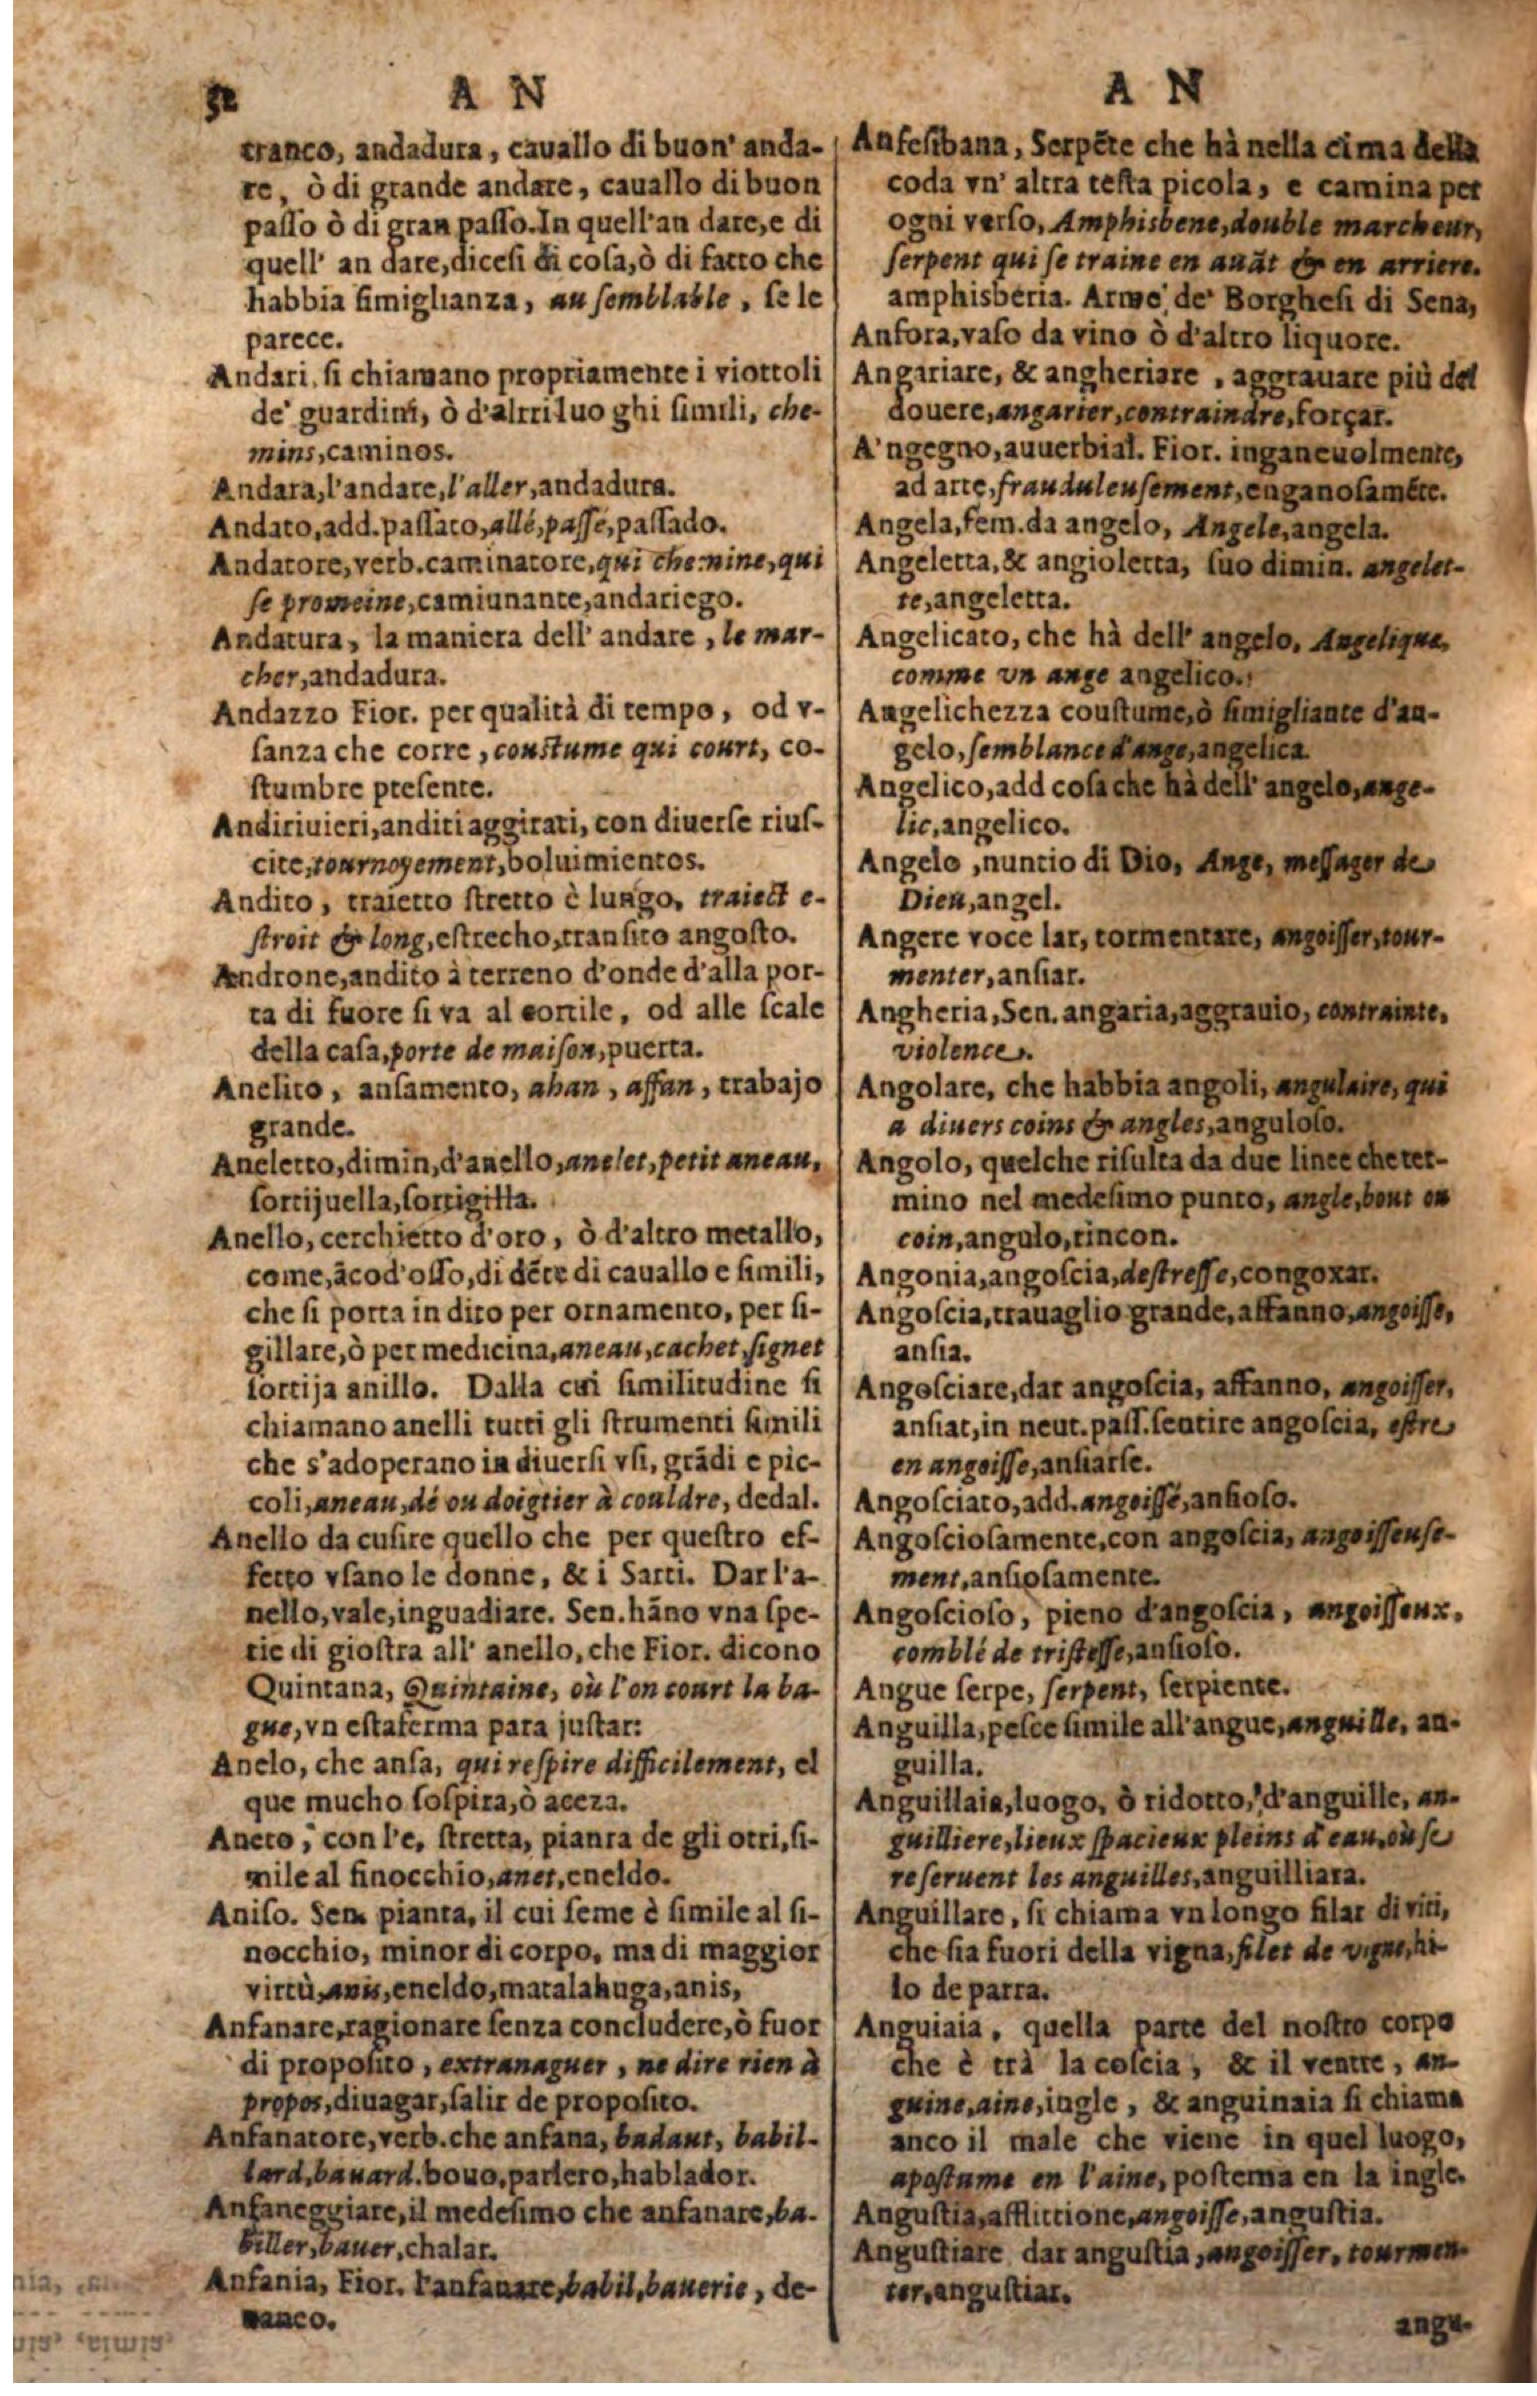 52 A N
tranco, andadura, cauallo di buon' anda-
re, ò di grande andare, cauallo di buon
passo ò di gran passo. In quell'an dare, e di
quell' an dare, dicesi di cosa, ò di fatto che
habbia simiglianza, au semblable, se le
parece.
Andari. si chiamano propriamente i viottoli
de' guardini, ò d'altri luo ghi simili, che-
mins, caminos.
Andara, l'andare, l'aller, andadura.
Andato, add. passato, allé, passé, passado.
Andatore, verb. caminatore, qui chemine, qui
se promeine, camiunante, andariego.
Andatura, la maniera dell' andare, le mar-
cher, andadura.
Andazzo Fior. per qualità di tempo, od v-
sanza che corre, coustume qui court, co-
stumbre presente.
Andiriuieri, anditi aggirati, con diuerse rius-
cite, tournoyement, boluimientos.
Andito, traietto stretto è lungo, traiect e-
stroit & long, estrecho, transito angosto.
Androne, andito à terreno d'onde d'alla por-
ta di fuore si va al cortile, od alle scale
della casa, porte de maison, puerta.
Anelito, ansamento, ahan, affan, trabajo
grande.
Aneletto, dimin, d'anello, anelet, petit aneau,
sortijuella, sortigilla.
Anello, cerchietto d'oro, ò d'altro metallo,
come, ācod'osso, di dēte di cauallo e simili,
che si porta in dito per ornamento, per si-
gillare, ò per medicina, aneau, cachet, signet
sortija anillo. Dalla cui similitudine si
chiamano anelli tutti gli strumenti simili
che s'adoperano in diuersi vsi, grādi e pic-
coli, aneau, dé ou doigtier à couldre, dedal.
Anello da cusire quello che per questro ef-
fetto vsano le donne, & i Sarti. Dar l'a-
nello, vale, inguadiare. Sen. hāno vna spe-
tie di giostra all' anello, che Fior. dicono
Quintana, Quintaine, où l'on court la ba-
gue, vn estaferma para justar:
Anelo, che ansa, qui respire difficilement, el
que mucho sospira, ò aceza.
Aneto, con l'e, stretta, pianta de gli orti, si-
mile al finocchio, anet, eneldo.
Aniso. Sen. pianta, il cui seme è simile al fi-
nocchio, minor di corpo, ma di maggior
virtù, anis, eneldo, matalahuga, anis,
Anfanare, ragionare senza concludere, ò fuor
di proposito, extranaguer, ne dire rien à
propos, diuagar, salir de proposito.
Anfanatore, verb. che anfana, badaut, babil-
lard, bauard. bouo, parlero, hablador.
Anfaneggiare, il medesimo che anfanare, ba-
biller, bauer, chalar.
Anfania, Fior. l'anfanare, babil, bauerie, de-
uaneo.
A N
Anfesibana, Serpēte che hà nella cima della
coda vn' altra testa picola, e camina per
ogni verso, Amphisbene, double marcheur,
serpent qui se traine en auāt & en arriere.
amphisberia. Arme de' Borghesi di Sena,
Anfora, vaso da vino ò d'altro liquore.
Angariare, & angheriare, aggrauare più del
douere, angarier, contraindre, forçar.
A'ngegno, auuerbial. Fior. inganeuolmente,
ad arte, frauduleusement, enganosamēte.
Angela, fem. da angelo, Angele, angela.
Angeletta, & angioletta, suo dimin. angelet-
te, angeletta.
Angelicato, che hà dell' angelo, Angelique,
comme vn ange angelico.
Angelichezza coustume, ò simigliante d'an-
gelo, semblance d'ange, angelica.
Angelico, add cosa che hà dell' angelo, ange-
lic, angelico.
Angelo, nuntio di Dio, Ange, messager de
Dieu, angel.
Angere voce lat, tormentare, angoisser, tour-
menter, ansiar.
Angheria, Sen. angaria, aggrauio, contrainte,
violence.
Angolare, che habbia angoli, angulaire, qui
a diuers coins & angles, anguloso.
Angolo, quelche risulta da due linee che ter-
mino nel medesimo punto, angle, bout ou
coin, angulo, rincon.
Angonia, angoscia, destresse, congoxar.
Angoscia, trauaglio grande, affanno, angoisse,
ansia.
Angosciare, dar angoscia, affanno, angoisser,
ansiar, in neut. pass. sentire angoscia, estre
en angoisse, ansiarse.
Angosciato, add. angoissé, ansioso.
Angosciosamente, con angoscia, angoisseuse-
ment, ansiosamente.
Angoscioso, pieno d'angoscia, angoisseux,
comblé de tristesse, ansioso.
Angue serpe, serpent, serpiente.
Anguilla, pesce simile all'angue, anguille, an-
guilla.
Anguillaia, luogo, ò ridotto, d'anguille, an-
guilliere, lieux spacieux pleins d'eau, où se
reseruent les anguilles, anguilliara.
Anguillare, si chiama vn longo filar di viti,
che sia fuori della vigna, filet de vigne, hi-
lo de parra.
Anguiaia, quella parte del nostro corpo
che è trà la coscia, & il ventre, an-
guine, aine, ingle, & anguinaia si chiama
anco il male che viene in quel luogo,
apostume en l'aine, postema en la ingle.
Angustia, afflittione, angoisse, angustia.
Angustiare dar angustia, angoisser, tourmen-
ter, angustiar.
angu-